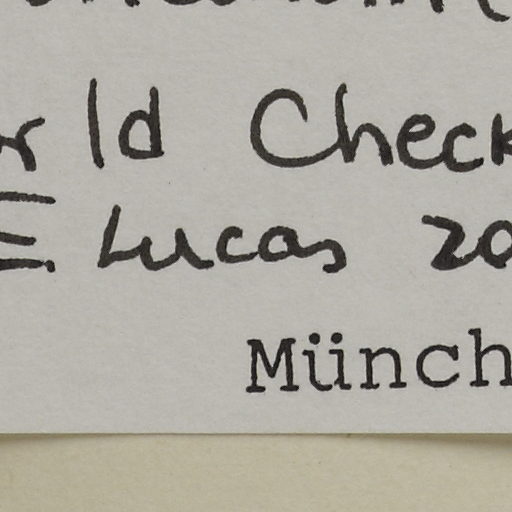 rld Check
E. Lucas 20
Münch